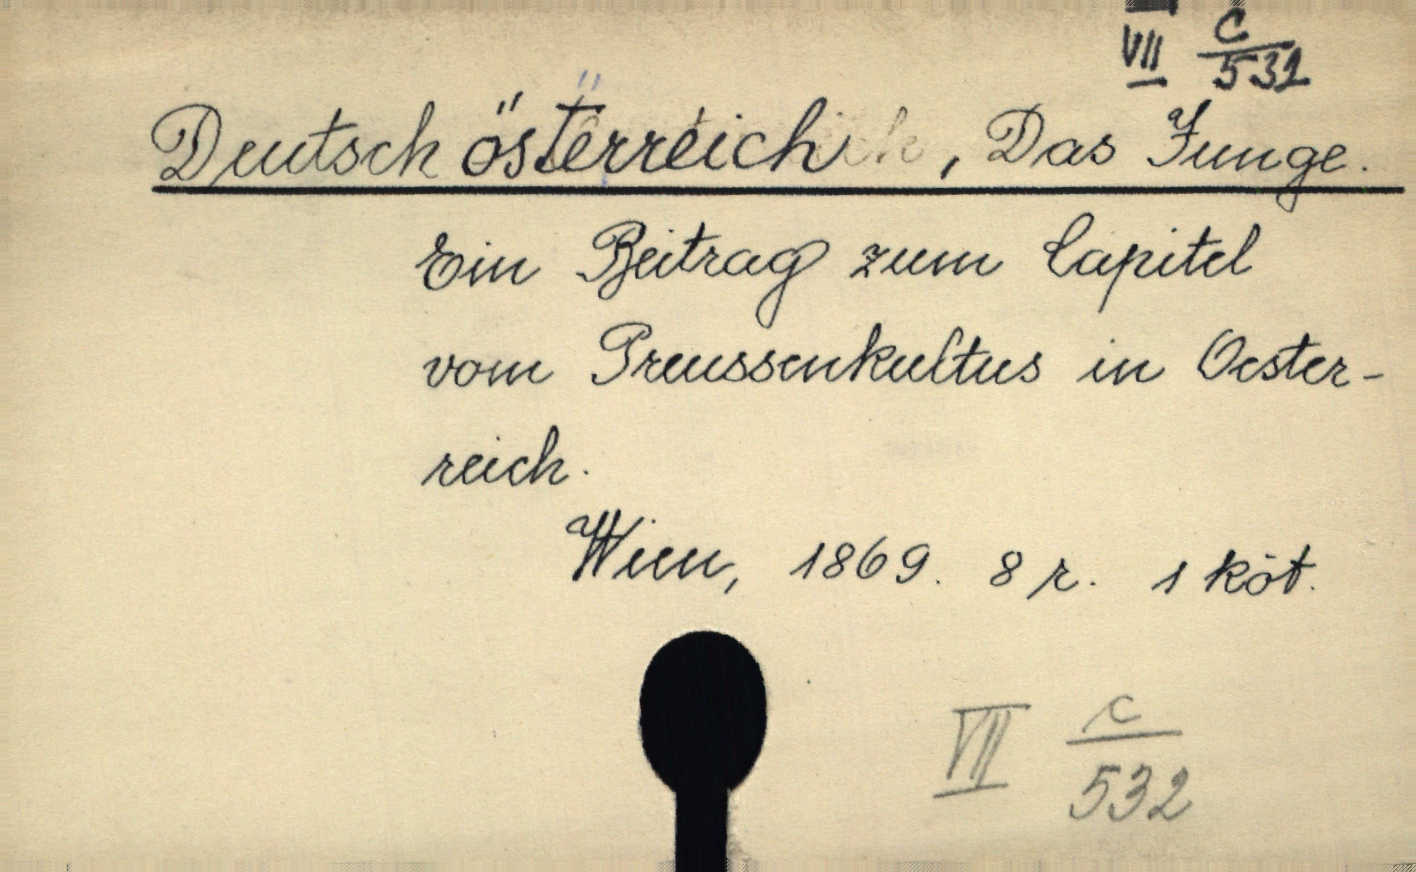 VII C/532
Deutschösterreich, Das Junge.
Ein Beitrag zum Capitel
vom Preussenkultus in Oester-
reich.
Wien, 1869. 8 r. 1 köt.
VII c/532